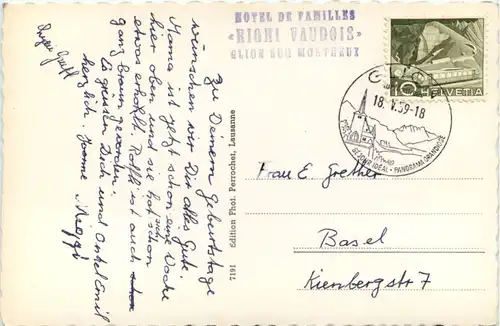 HOTEL DE FAMILLES
«RIGHI VAUDOIS»
GLION SUR MONTREUX
10 HELVETIA
GLION
18.V.59-18
SEJOUR IDÉAL • PANORAMA GRANDIOSE
Zu Deinem Geburtstage
wünschen wir Dir alles Gute.
Mama ist jetzt schon eine Woche
hier oben und sie hat sich schon
etwas erholt. Rolfli ist auch schon
ganz braun geworden.
Es grüssen Dich und Onkel Emil
herzlich Yvonne
Meggi
7191 Edition Phot. Perrochet, Lausanne
Frau E. Grether
Basel
Kienbergstr 7